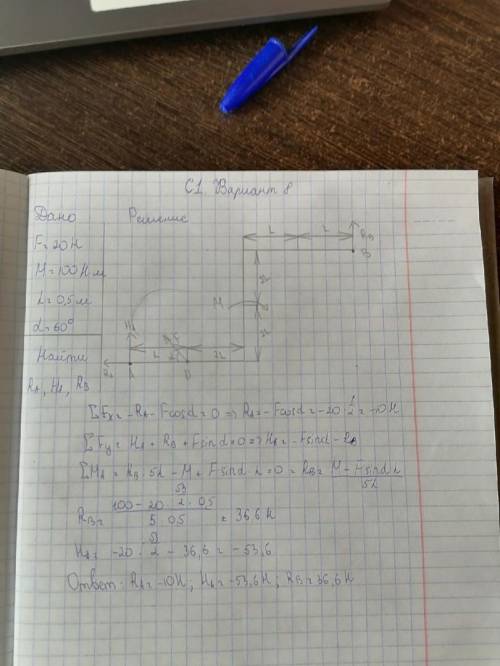 С1. Вариант 8
Дано
Решение
F = 20 Н
M = 100 Н м
L = 0,5 м
α = 60°
Найти
R_A, H_A, R_B
L
L
R_B
B
M
L
2L
R_A
A
ΣFx = -R_A - Fcosα = 0 => R_A = -Fcosα = -20 · 1/2 = -10 Н
ΣFy = H_A + R_B + Fsinα = 0 => H_A = -Fsinα - R_B
ΣM_A = R_B · 5L - M + Fsinα · L = 0 = R_B = (M - Fsinα L)/5L
R_B = (100 - 20 · √3/2 · 0,5)/(5 · 0,5) = 36,6 Н
H_A = -20 · √3/2 - 36,6 = -53,6
Ответ: R_A = -10 Н; H_A = -53,6 Н; R_B = 36,6 Н